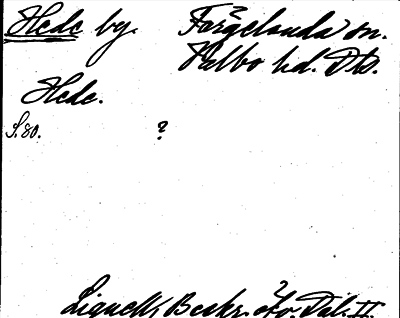 Hede by. Färgelanda sn.
Valbo hd. Dls.
Hede.
S. 80. ?
Lignell, Beskr. öfv. Dal. II.